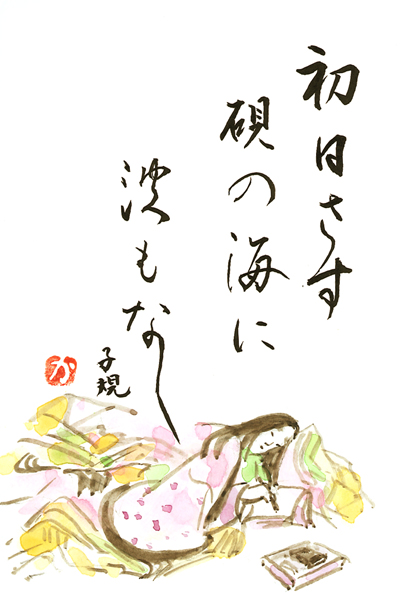 初日さす
硯の海に
波もなし
子規
か